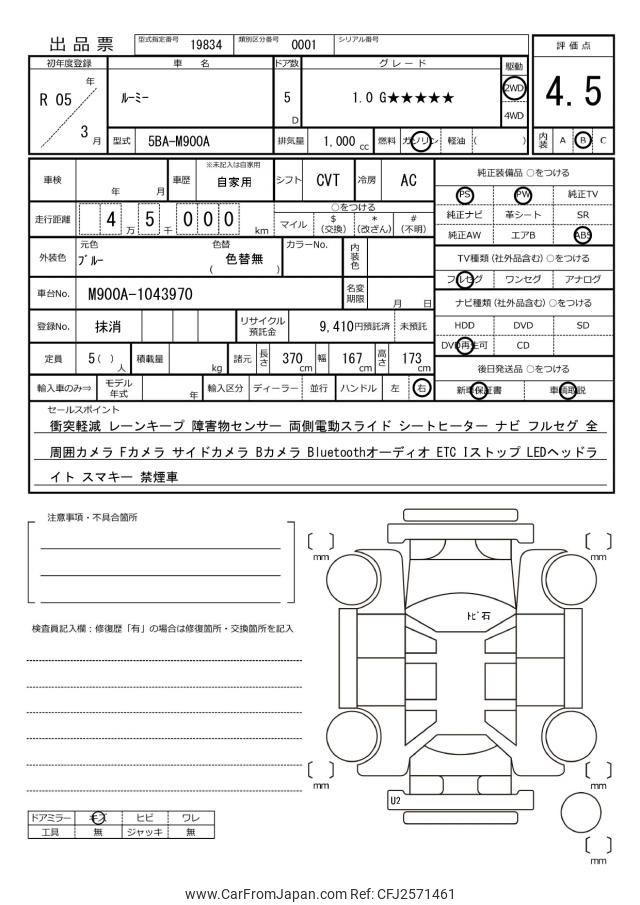 出品票 型式指定番号 19834 類別区分番号 0001 シリアル番号
評価点
4.5
内装 A B C
初年度登録 車 名 ドア数 グレード 駆動
R 05 年 3 月
ルーミー 5 D 1.0 G★★★★★ 2WD
4WD
型式 5BA-M900A 排気量 1,000 cc 燃料 ガソリン 軽油 ( )
車検 年 月 車歴 ※未記入は自家用 自家用 シフト CVT 冷房 AC
走行距離 4 万 5 千 0 0 0 km
○をつける
マイル $(交換) *(改ざん) #(不明)
外装色 元色 ブルー 色替 ( 色替無 ) カラーNo. 内装色
車台No. M900A-1043970 名変期限 月 日
登録No. 抹消 リサイクル預託金 9,410円預託済 未預託
定員 5( ) 人 積載量 kg 諸元 長さ 370 cm 幅 167 cm 高さ 173 cm
輸入車のみ⇒ モデル年式 年 輸入区分 ディーラー 並行 ハンドル 左 右
純正装備品 ○をつける
PS PW 純正TV
純正ナビ 革シート SR
純正AW エアB ABS
TV種類(社外品含む) ○をつける
フルセグ ワンセグ アナログ
ナビ種類(社外品含む) ○をつける
HDD DVD SD
DVD再生可 CD
後日発送品 ○をつける
新車保証書 車輌取説
セールスポイント
衝突軽減 レーンキープ 障害物センサー 両側電動スライド シートヒーター ナビ フルセグ 全
周囲カメラ Fカメラ サイドカメラ Bカメラ Bluetoothオーディオ ETC Iストップ LEDヘッドラ
イト スマキー 禁煙車
注意事項・不具合箇所
検査員記入欄：修復歴「有」の場合は修復箇所・交換箇所を記入
mm mm
トビ石
mm mm
U2
mm
ドアミラー キズ ヒビ ワレ
工具 無 ジャッキ 無
www.CarFromJapan.com Ref: CFJ2571461